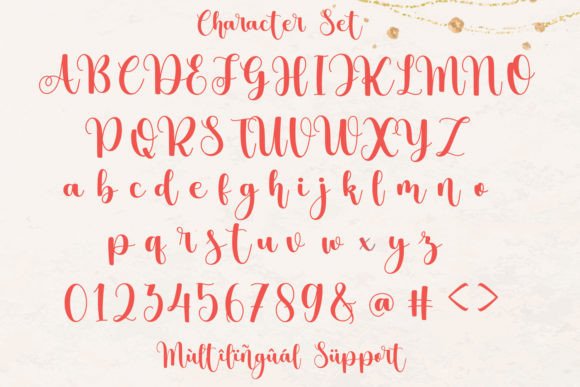 Character Set
A B C D E F G H I J K L M N O
P Q R S T U V W X Y Z
a b c d e f g h i j k l m n o
p q r s t u v w x y z
0 1 2 3 4 5 6 7 8 9 & @ # < >
Mùltîlïñgûál Süppört